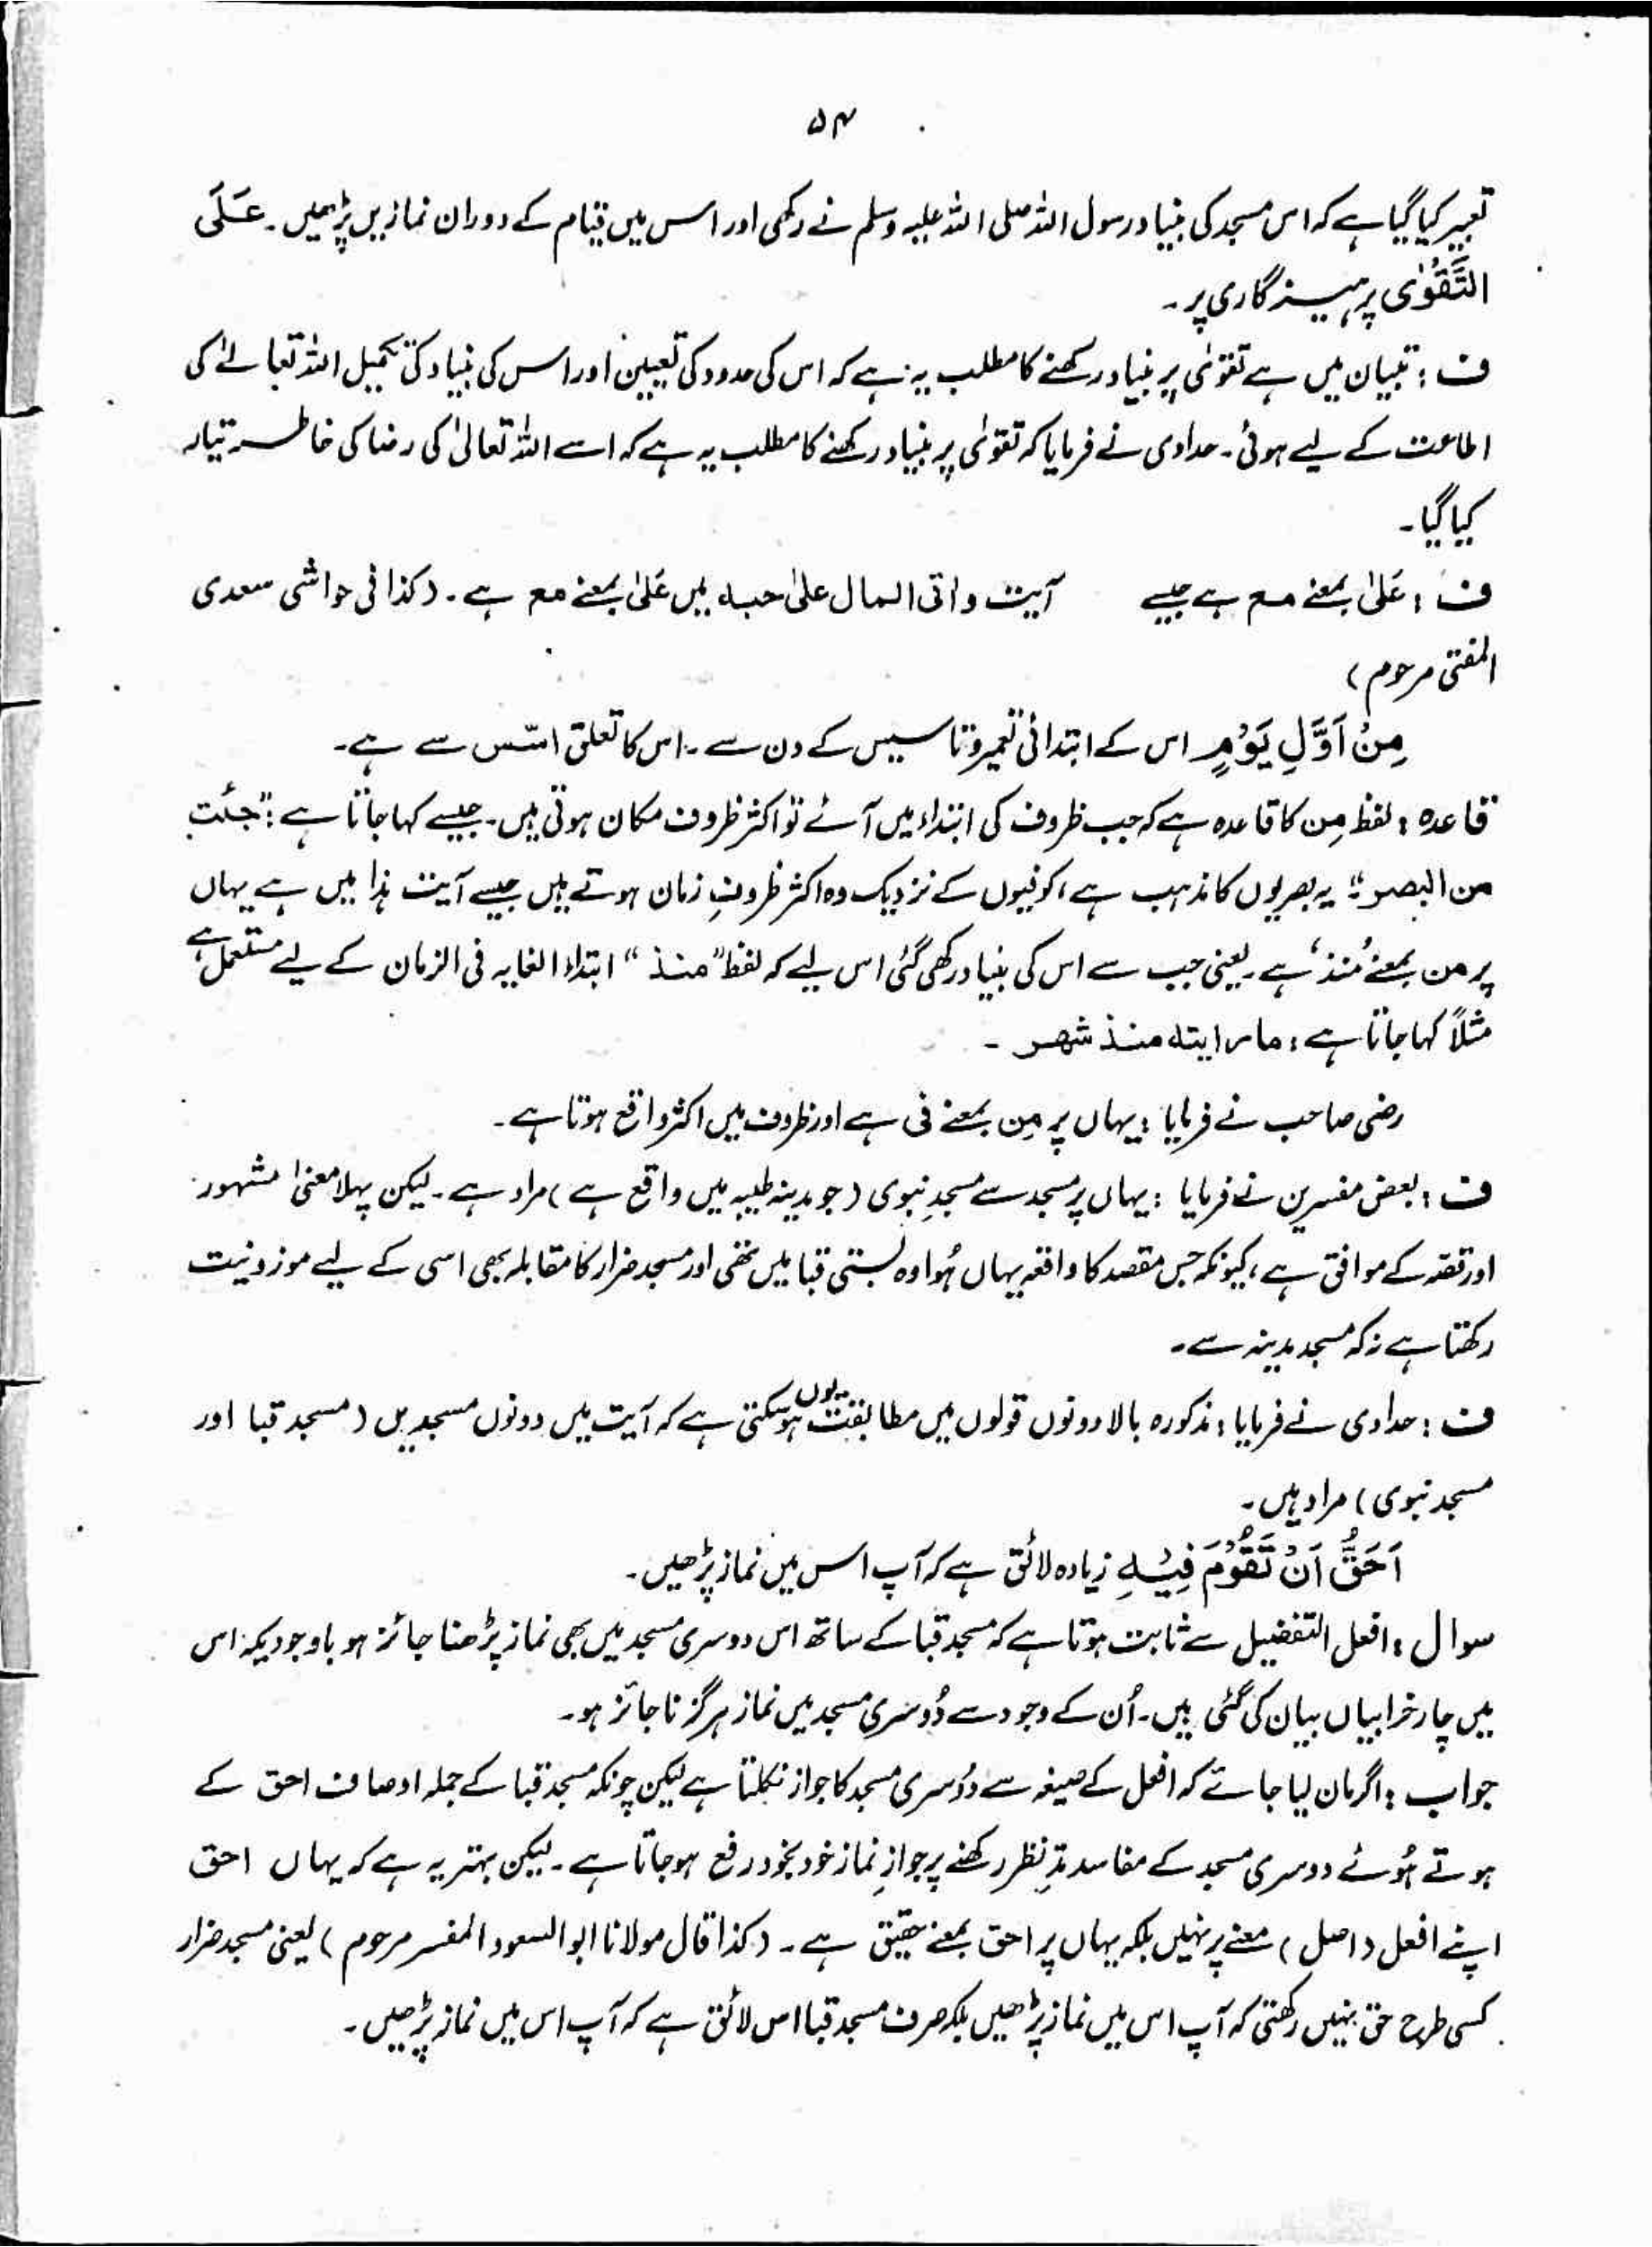 ۵۴
تعبیر کیا گیا ہے کہ اس مسجد کی بنیاد رسول اللہ صلی اللہ علیہ وسلم نے رکھی اور اس میں قیام کے دوران نمازیں پڑھیں۔ عَلَی
التَّقْوٰی پرہیزگاری پر۔
ف : تبیان میں ہے تقوٰی پر بنیاد رکھنے کا مطلب یہ ہے کہ اس کی حدود کی تعیین اور اس کی بنیاد کی تکمیل اللہ تعالےٰ کی
اطاعت کے لیے ہوئی۔ حدادی نے فرمایا کہ تقوٰی پر بنیاد رکھنے کا مطلب یہ ہے کہ اسے اللہ تعالیٰ کی رضا کی خاطر تیار
کیا گیا۔
ف : عَلیٰ بمعنے مع ہے جیسے آیت واتی المال علیٰ حبہ میں عَلیٰ بمعنے مع ہے۔ (کذا فی حواشی سعدی
المفتی مرحوم)
مِنْ اَوَّلِ یَوْمٍ اس کے ابتدائی تعمیر و تاسیس کے دن سے۔ اس کا تعلق اسّس سے ہے۔
قاعدہ : لفظ مِن کا قاعدہ ہے کہ جب ظروف کی ابتداء میں آئے تو اکثر ظروف مکان ہوتی ہیں۔ جیسے کہا جاتا ہے : "جئت
من البصر"۔ یہ بصریوں کا مذہب ہے، کوفیوں کے نزدیک وہ اکثر ظروفِ زمان ہوتے ہیں جیسے آیت ہٰذا میں ہے یہاں
پر من بمعنے مُنذ ہے۔ یعنی جب سے اس کی بنیاد رکھی گئی اس لیے کہ لفظ "منذ" ابتداء الغایہ فی الزمان کے لیے مستعمل ہے
مثلاً کہا جاتا ہے : مارایتہ منذ شھر ۔
رضی صاحب نے فرمایا : یہاں پر مِن بمعنے فی ہے اور ظروف میں اکثر واقع ہوتا ہے۔
ف : بعض مفسرین نے فرمایا : یہاں پر مسجد سے مسجدِ نبوی (جو مدینہ طیبہ میں واقع ہے) مراد ہے۔ لیکن پہلا معنیٰ مشہور
اور قصّہ کے موافق ہے، کیونکہ جس مقصد کا واقعہ یہاں ہُوا وہ بستی قبا میں تھی اور مسجد ضرار کا مقابلہ بھی اسی کے لیے موزونیت
رکھتا ہے نہ کہ مسجد مدینہ سے۔
ف : حدادی نے فرمایا : مذکورہ بالا دونوں قولوں میں مطابقت یوں ہوسکتی ہے کہ آیت میں دونوں مسجدیں (مسجد قبا اور
مسجد نبوی) مراد ہیں۔
اَحَقُّ اَنْ تَقُوْمَ فِیْہِ زیادہ لائق ہے کہ آپ اس میں نماز پڑھیں۔
سوال : افعل التفضیل سے ثابت ہوتا ہے کہ مسجد قبا کے ساتھ اس دوسری مسجد میں بھی نماز پڑھنا جائز ہو باوجودیکہ اس
میں چار خرابیاں بیان کی گئی ہیں۔ اُن کے وجود سے دُوسری مسجد میں نماز ہرگز ناجائز ہو۔
جواب : اگر مان لیا جائے کہ افعل کے صیغہ سے دُوسری مسجد کا جواز نکلتا ہے لیکن چونکہ مسجد قبا کے جملہ اوصاف احق کے
ہوتے ہُوئے دوسری مسجد کے مفاسد مدِّنظر رکھنے پر جوازِ نماز خود بخود رفع ہوجاتا ہے۔ لیکن بہتر یہ ہے کہ یہاں احق
اپنے افعل (اصل) معنے پر نہیں بلکہ یہاں پر احق بمعنے حقیق ہے۔ (کذا قال مولانا ابوالسعود المفسر مرحوم) یعنی مسجد ضرار
کسی طرح حق نہیں رکھتی کہ آپ اس میں نماز پڑھیں بلکہ صرف مسجد قبا اس لائق ہے کہ آپ اس میں نماز پڑھیں۔